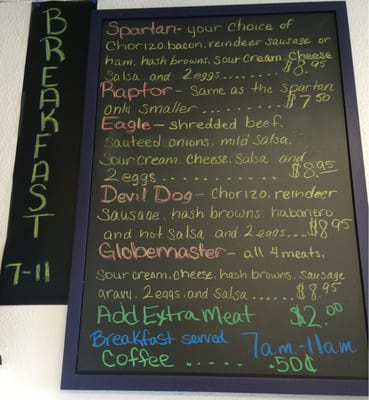 BREAKFAST
7-11
Spartan- your choice of
Chorizo, bacon, reindeer sausage or
ham, hash browns, sour cream, cheese
Salsa and 2 eggs........ $8.95
Raptor - Same as the spartan
only smaller............ $7.50
Eagle - shredded beef,
Sauteed onions, mild salsa,
Sour cream, cheese, salsa and
2 eggs ............. $8.95
Devil Dog - Chorizo, reindeer
Sausage, hash browns, habanero
and hot salsa and 2 eggs... $8.95
Globemaster - all 4 meats,
Sour cream, cheese, hash browns, sausage
gravy, 2 eggs, and Salsa ...... $8.95
Add Extra Meat $2.00
Breakfast served 7am-11am
Coffee ..... .50¢